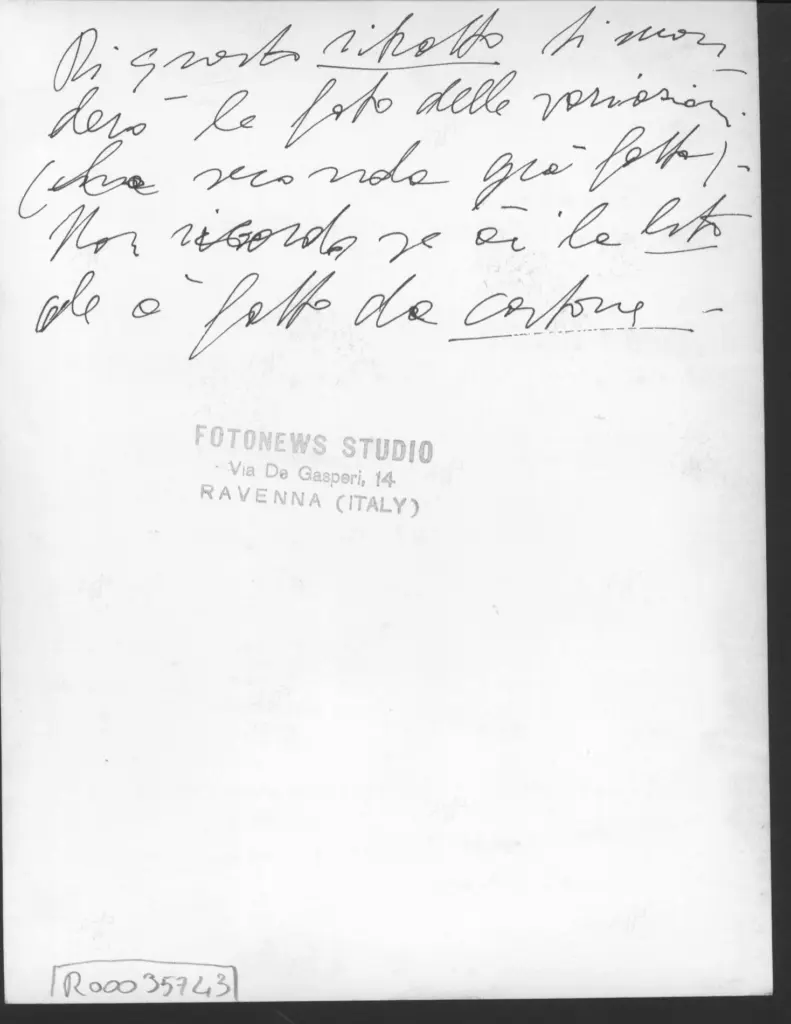 Di questo ritratto ti man
derò le foto delle variazioni.
(una seconda già fatta) -
Non ricordo se è la
che è fatto da cartone -
FOTONEWS STUDIO
Via De Gasperi, 14
RAVENNA (ITALY)
R00035743